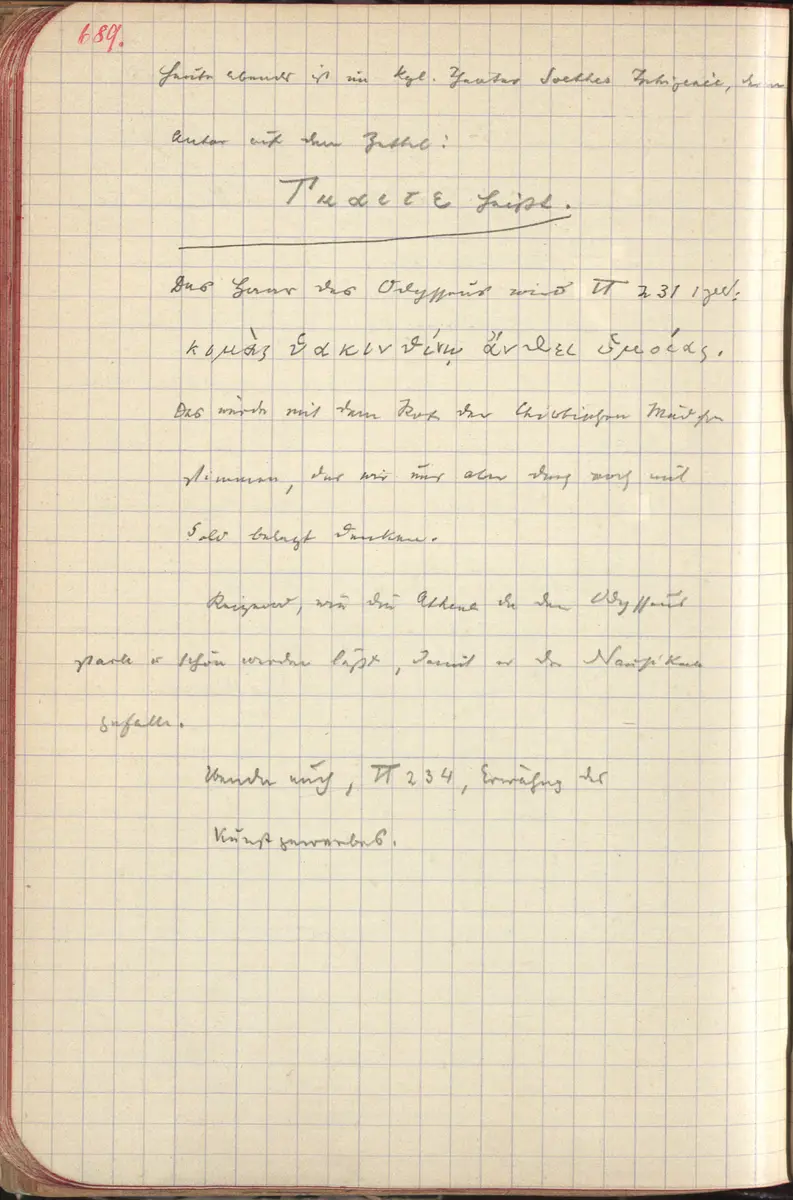 689.
Heute abend ist im Kgl. Theater Goethes Iphigenie, deren
Autor auf dem Zettel:
Γκαετε heißt.
Das Haar des Odysseus wird π 231
κομὰς ὑακινθίνῳ ἄνθει ὁμοίας.
Das würde mit dem Rot der Chiotischen Mädchen
stimmen, das wir uns aber doch noch mit
Gold belegt denken.
Reizend, wie die Athene da den Odysseus
stark u schön werden läßt, damit er der Nausikaa
gefalle.
auch, π 234, Erwähng des
Kunstgewerbes.